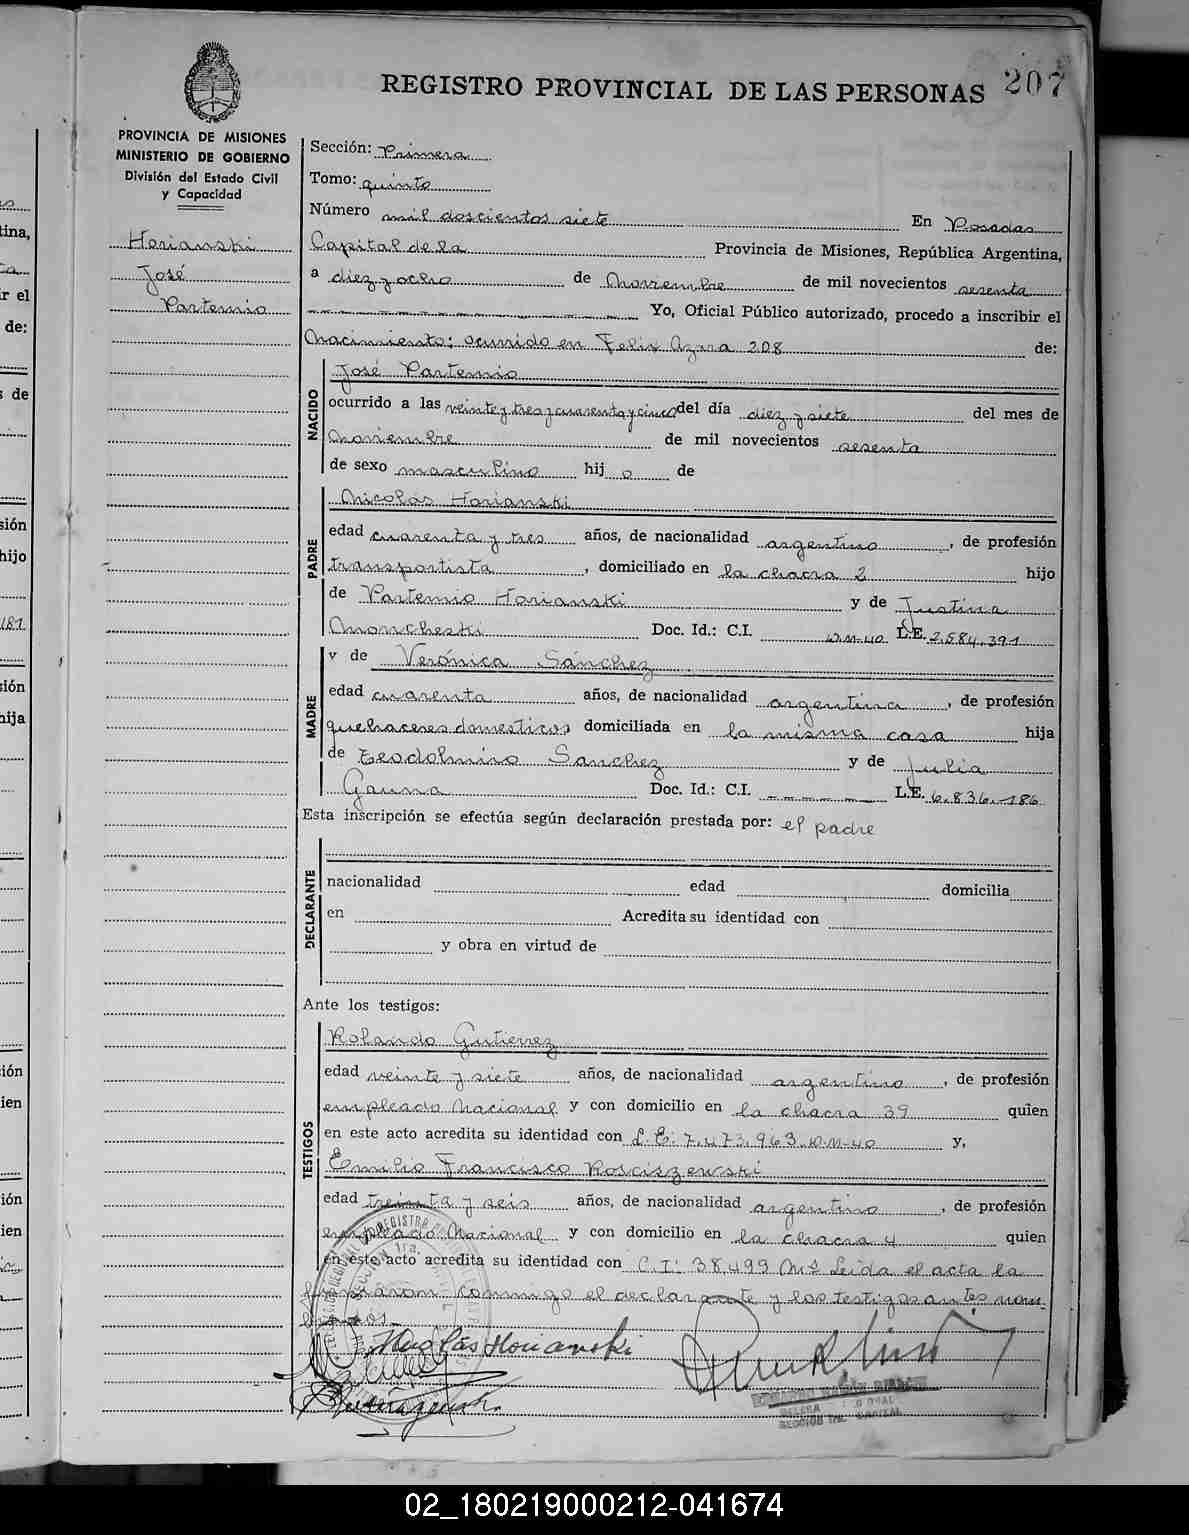 REGISTRO PROVINCIAL DE LAS PERSONAS 207
PROVINCIA DE MISIONES
MINISTERIO DE GOBIERNO
División del Estado Civil
y Capacidad
Horianski
José
Partemio
Sección: Primera
Tomo: quinto
Número mil doscientos siete En Posadas
Capital de la Provincia de Misiones, República Argentina,
a diez y ocho de Noviembre de mil novecientos sesenta
Yo, Oficial Público autorizado, procedo a inscribir el
Nacimiento: ocurrido en Felix Azara 208 de:
NACIDO
José Partemio
ocurrido a las veinte y tres y cuarenta y cinco del día diez y siete del mes de
Noviembre de mil novecientos sesenta
de sexo masculino hijo de
PADRE
Nicolás Horianski
edad cuarenta y tres años, de nacionalidad argentino, de profesión
transportista, domiciliado en la chacra 2 hijo
de Partemio Horianski y de Justina
Moncheski Doc. Id.: C.I. D.M-40 L.E. 2.584.391
MADRE
y de Verónica Sánchez
edad cuarenta años, de nacionalidad argentina, de profesión
quehaceres domesticos domiciliada en la misma casa hija
de Teodolmiro Sanchez y de Julia
Gauna Doc. Id.: C.I. L.E. 6.836.186
Esta inscripción se efectúa según declaración prestada por: el padre
DECLARANTE
nacionalidad edad domicilia
en Acredita su identidad con
y obra en virtud de
Ante los testigos:
TESTIGOS
Rolando Gutierrez
edad veinte y siete años, de nacionalidad argentino, de profesión
empleado Nacional y con domicilio en la chacra 39 quien
en este acto acredita su identidad con L.E: 7.473.963 D.M-40 y,
Emilio Francisco Kosciszewski
edad treinta y seis años, de nacionalidad argentino, de profesión
empleado Nacional y con domicilio en la chacra 4 quien
en este acto acredita su identidad con C.I: 38.499 Ms Leida el acta la
firmaron conmigo el declarante y los testigos antes nom
brados.
Nicolás Horianski
SECCION 1ra. CAPITAL
02_180219000212-041674